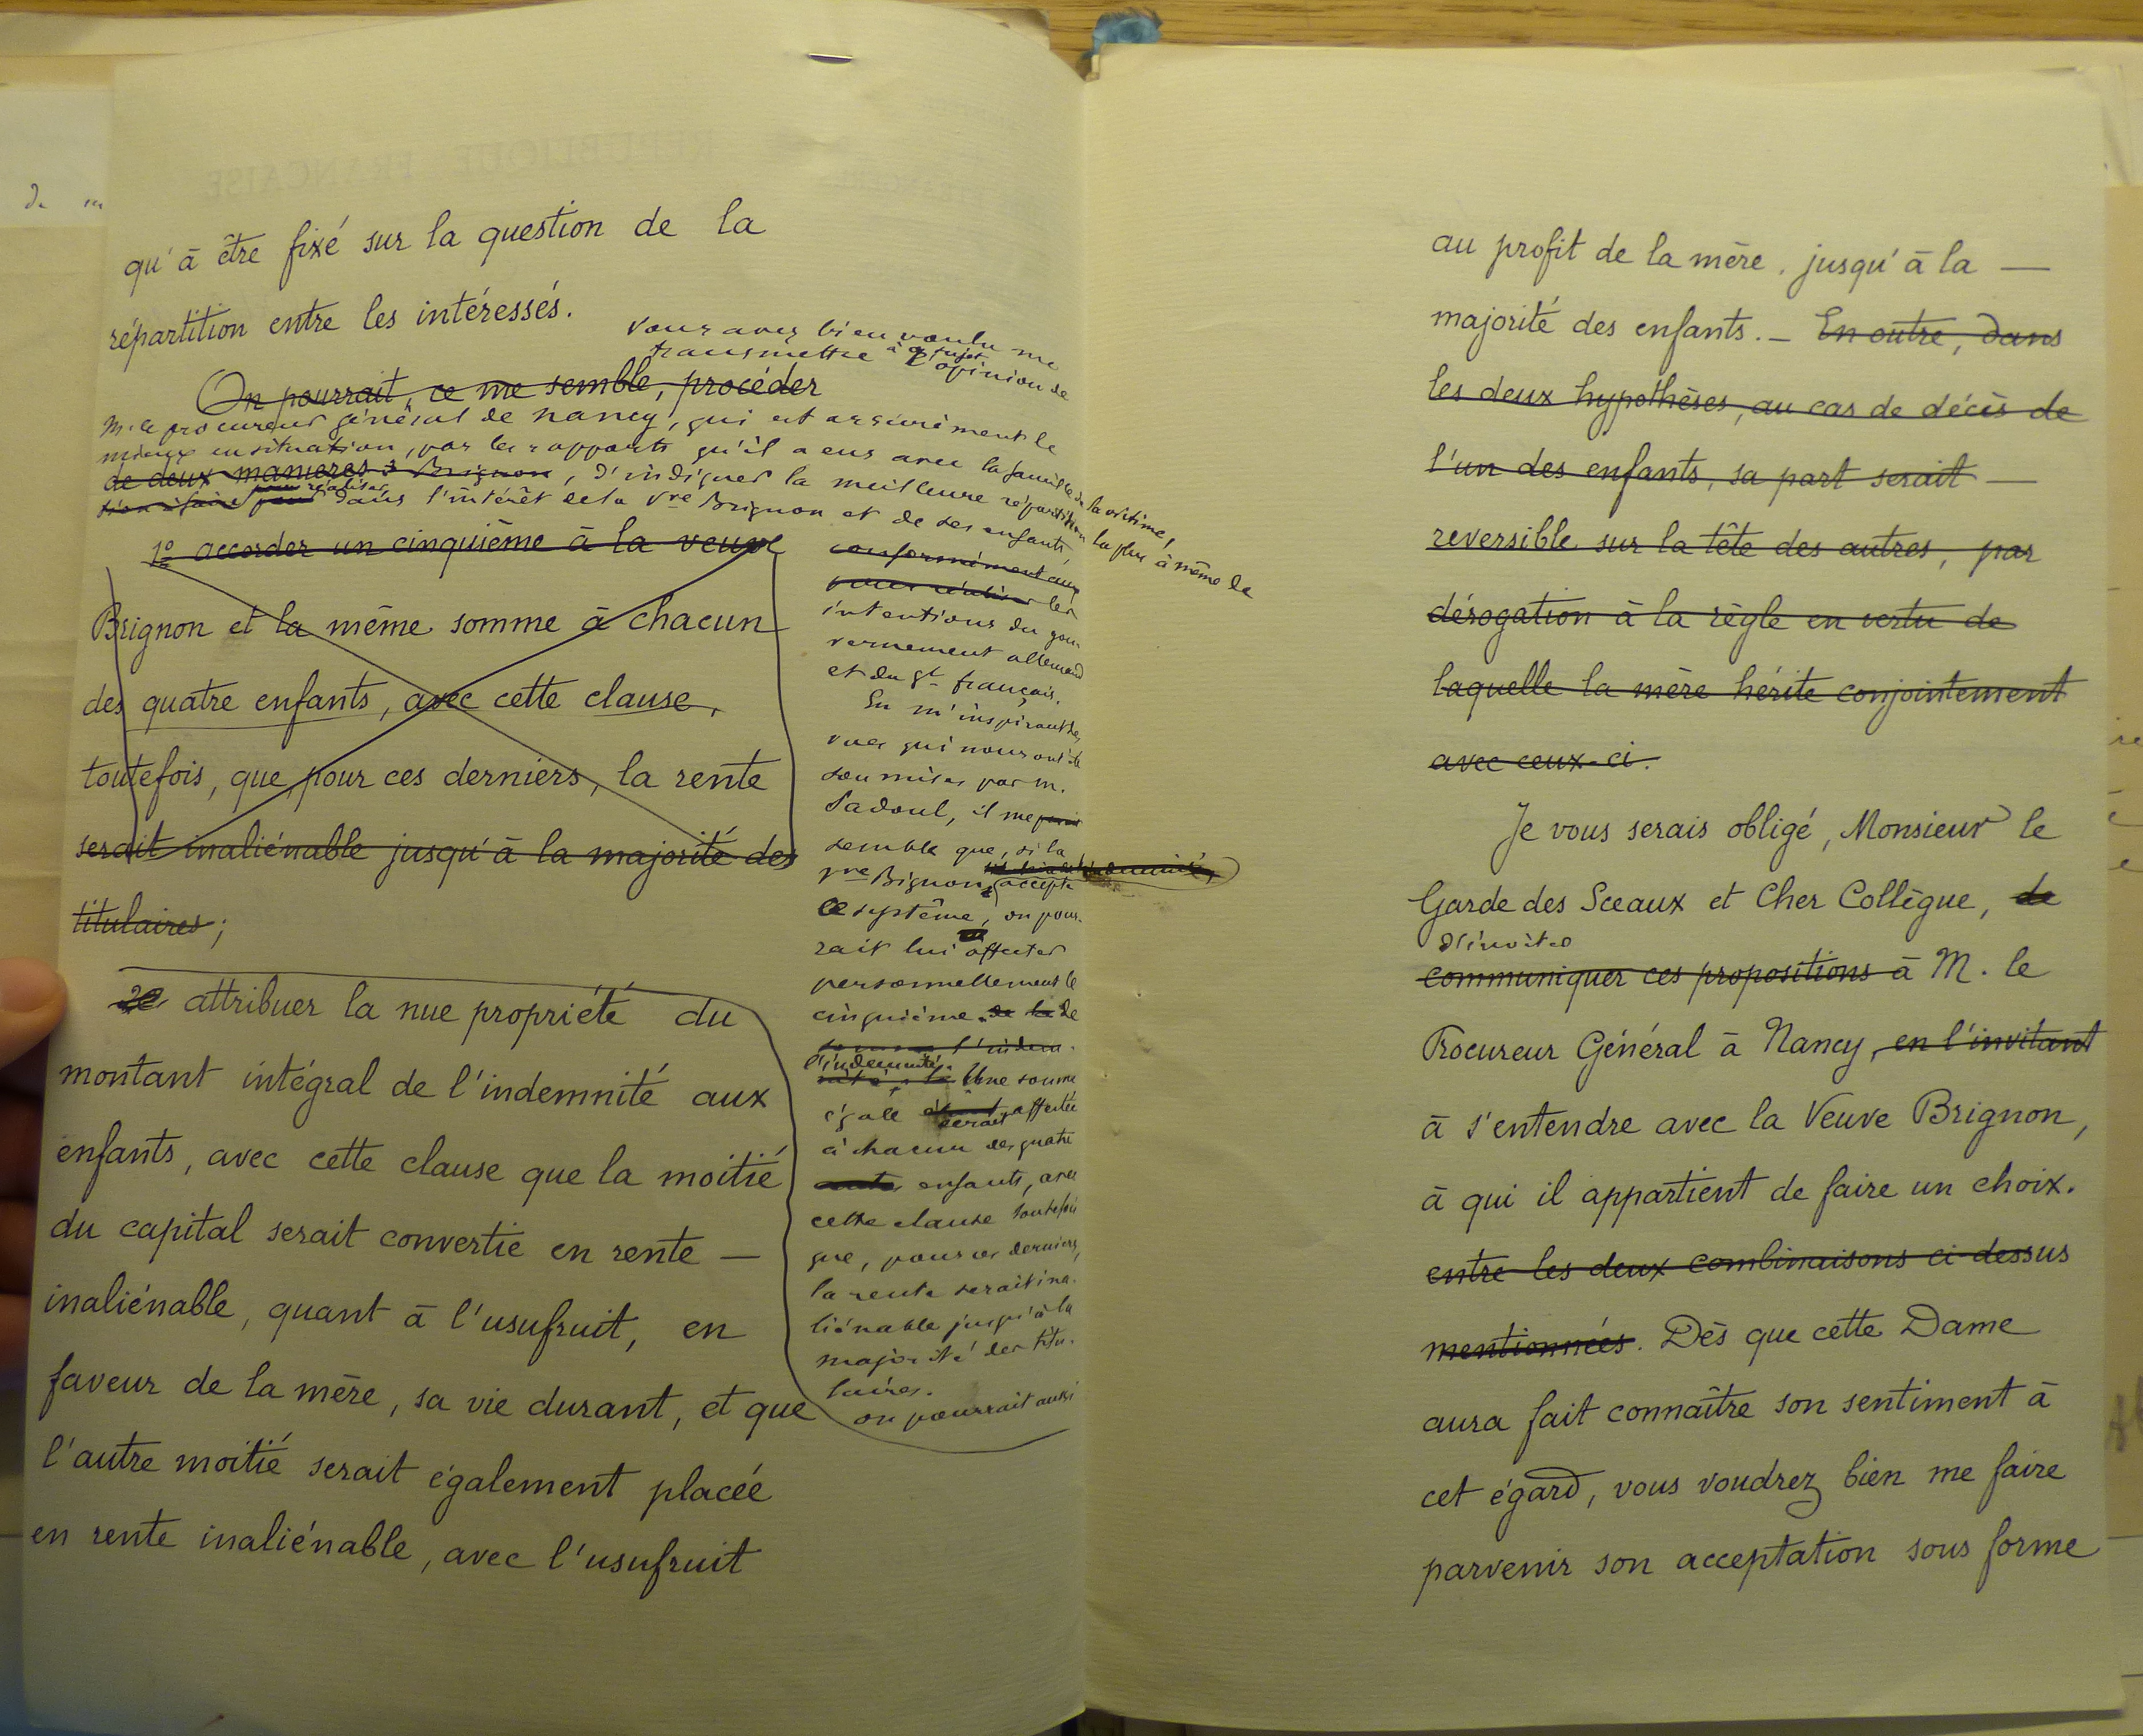 qu'à être fixé sur la question de la
répartition entre les intéressés.
vous avez bien voulu me
transmettre à ce sujet l'opinion de
On pourrait, ce me semble, procéder
M. le procureur général de Nancy, qui est assurément le
mieux en situation, par les rapports qu'il a eus avec la famille de la victime,
de deux manières : Brignon, d'indiquer la meilleure répartition la plus à même de
pour réaliser
dans l'intérêt de la Vve Brignon et de ses enfants
1º accorder un cinquième à la veuve
Brignon et la même somme à chacun
des quatre enfants, avec cette clause,
toutefois, que, pour ces derniers, la rente
serait inaliénable jusqu'à la majorité des
titulaires ;
conformément aux
pour réaliser les
intentions du gou-
vernement allemand
et du gt français.
En m'inspirant des
vues qui nous ont été
soumises par M.
Sadoul, il me
semble que, si la
Vve Brignon accepte
l'indemnité,
ce système, on pour-
rait lui affecter
personnellement le
cinquième de la de
somme l'indem-
l'indemnité.
nité. Une somme
égale serait affectée
à chacun des quatre
enfants, avec
cette clause toutefois
que, pour ces derniers,
la rente serait ina-
liénable jusqu'à la
majorité des titu-
laires.
on pourrait aussi
2º attribuer la nue propriété du
montant intégral de l'indemnité aux
enfants, avec cette clause que la moitié
du capital serait convertie en rente —
inaliénable, quant à l'usufruit, en
faveur de la mère, sa vie durant, et que
l'autre moitié serait également placée
en rente inaliénable, avec l'usufruit
au profit de la mère, jusqu'à la —
majorité des enfants. — En outre, dans
les deux hypothèses, au cas de décès de
l'un des enfants, sa part serait —
reversible sur la tête des autres, par
dérogation à la règle en vertu de
laquelle la mère hérite conjointement
avec ceux-ci.
Je vous serais obligé, Monsieur le
Garde des Sceaux et Cher Collègue, de
d'inviter
communiquer ces propositions à M. le
Procureur Général à Nancy, en l'invitant
à s'entendre avec la Veuve Brignon,
à qui il appartient de faire un choix.
entre les deux combinaisons ci-dessus
mentionnées. Dès que cette Dame
aura fait connaître son sentiment à
cet égard, vous voudrez bien me faire
parvenir son acceptation sous forme